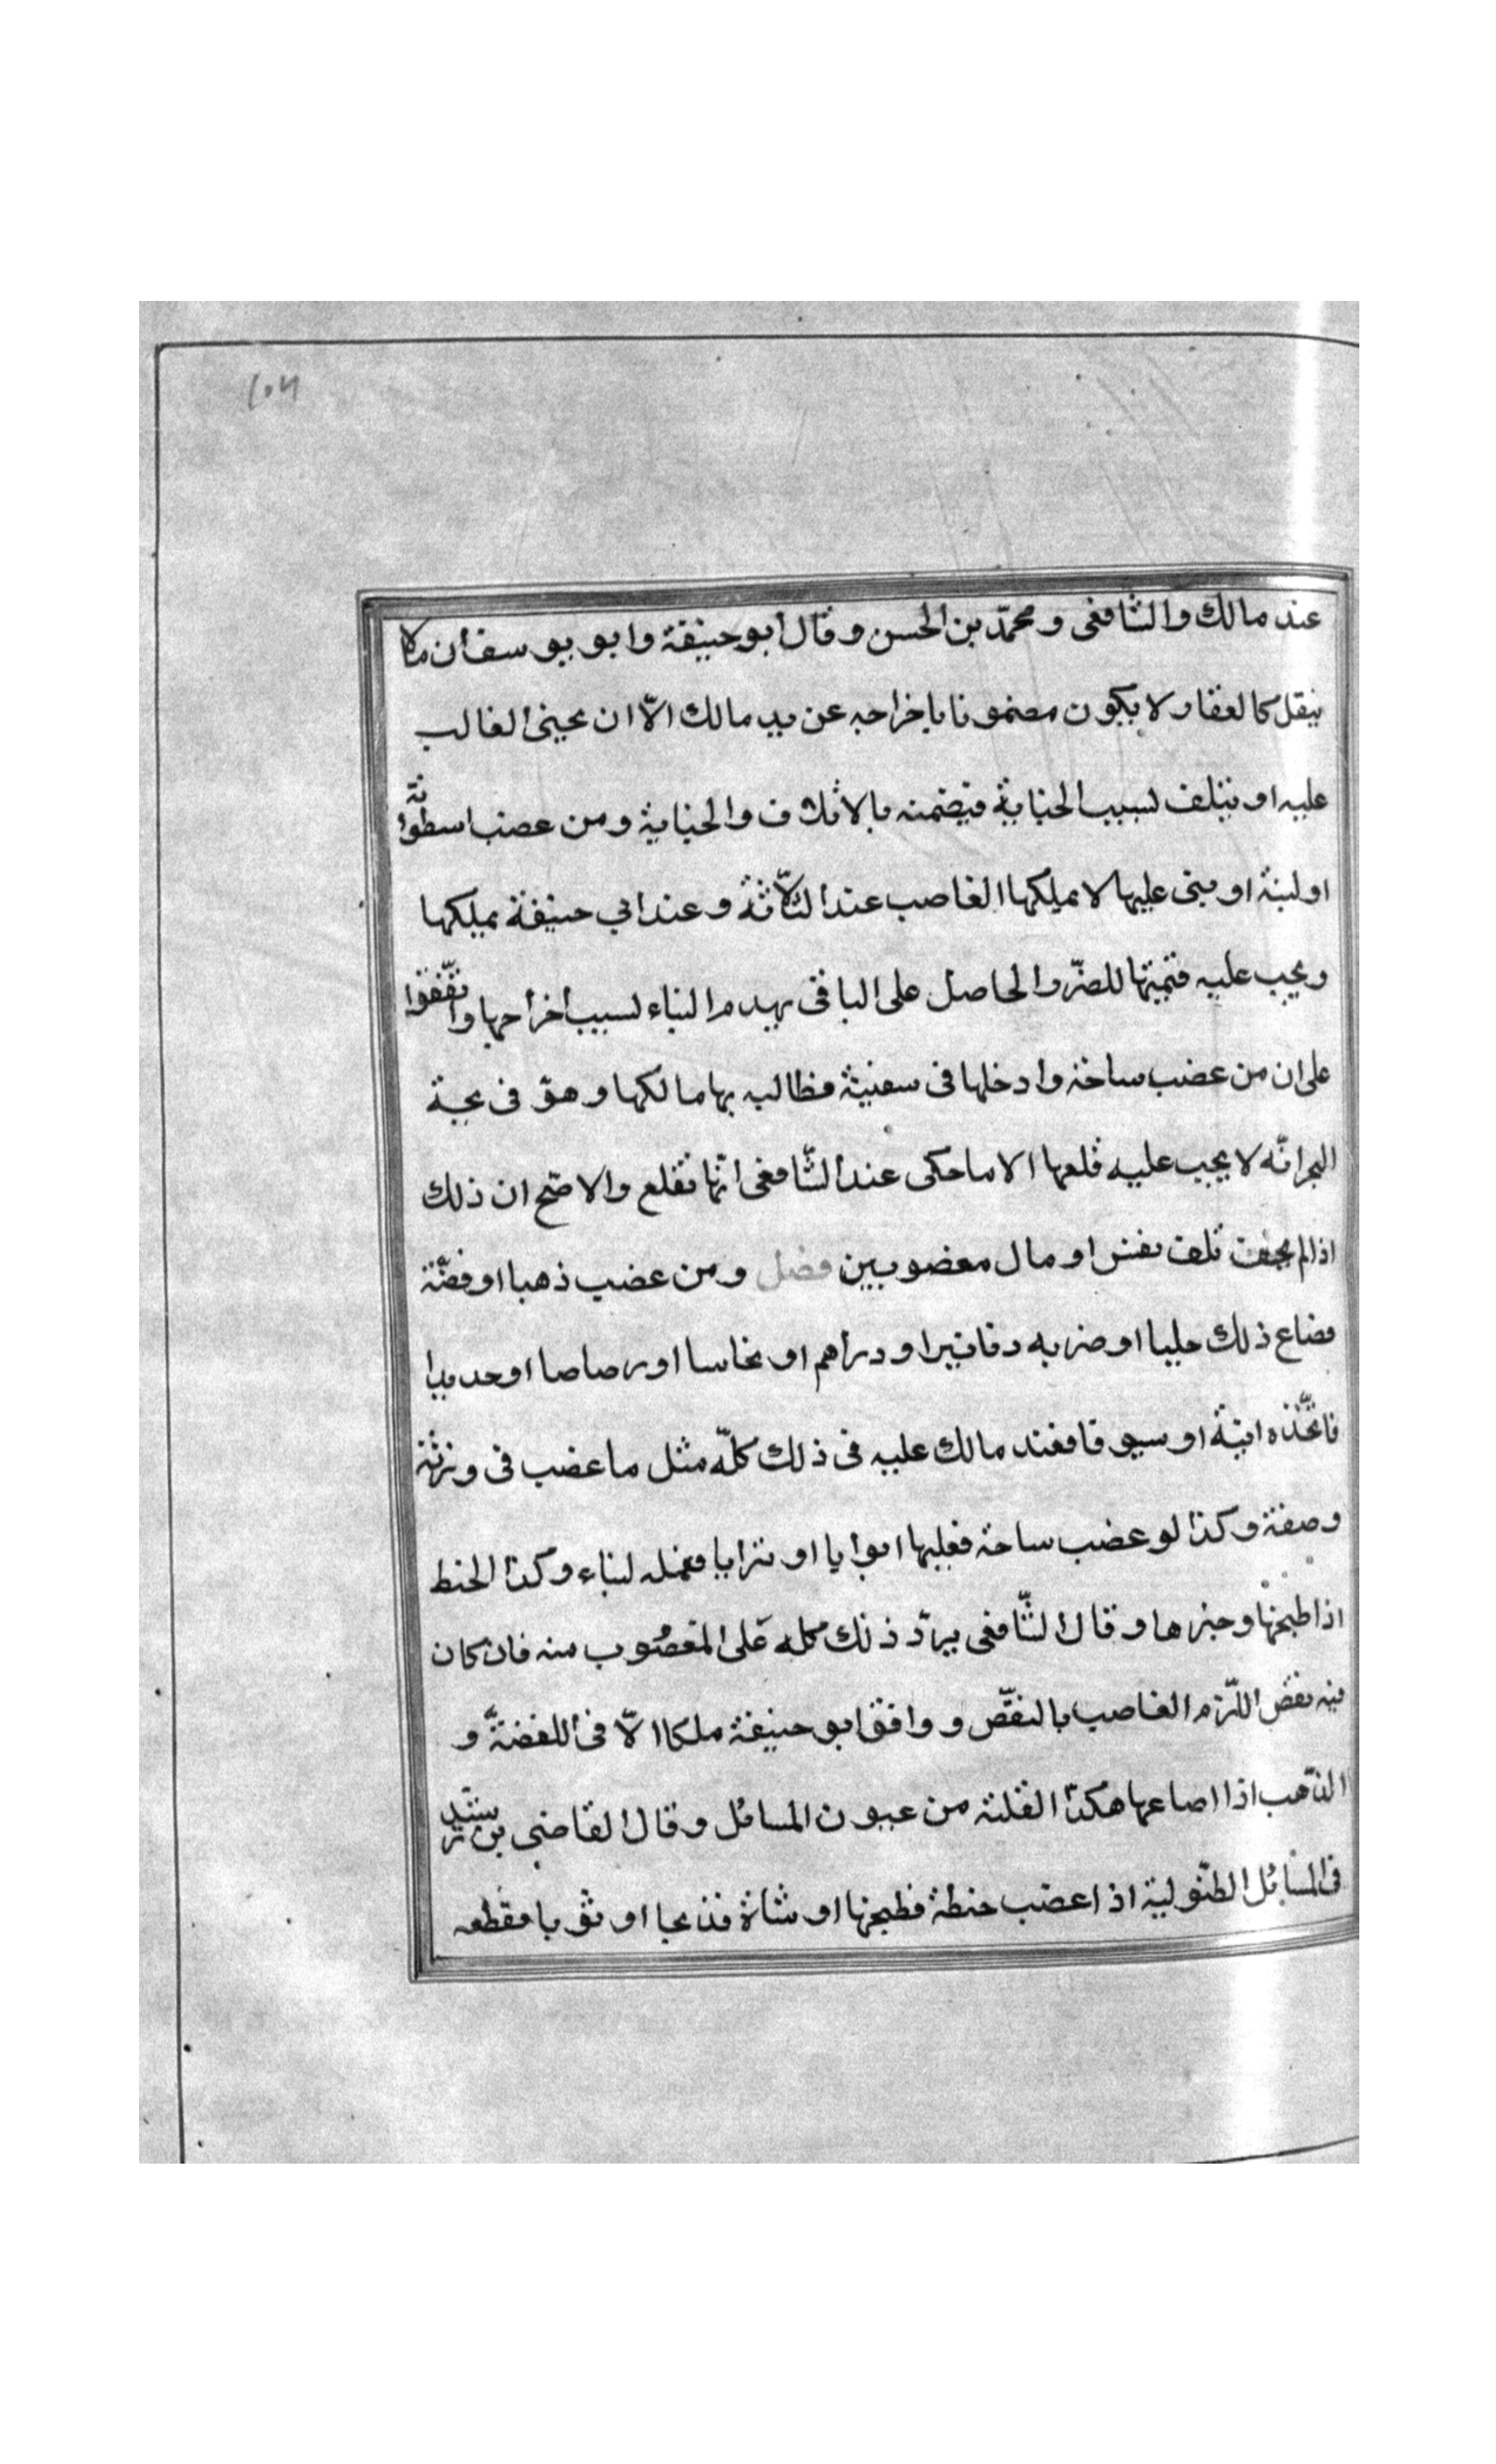 عند مالك والشافعى ومحمّد بن الحسن وقال أبو حنيفة وابو يوسف أن مالا
ينقل كالعقار لا يكون مضمونا باخراجه عن يد مالك الاّ ان يجنى الغالب
عليه او يتلف لسبب الجناية فيضمنه بالاتلاف والجناية ومن غصب اسطوانة
او لبنة او بنى عليها لا يملكها الغاصب عند الثّلاثة وعند ابي حنيفة يملكها
ويجب عليه قيمتها للضرّ والحاصل على البا فى بهدم البناء لسبب أخراجها واتّفقوا
على ان من غضب ساخة وادخلها فى سفينة فطالبه بها مالكها وهوّ فى لجة
البحر انّه لا يجب عليه قلعها الا ما حكى عند الشّافعى انّها تقلع والاصّح ان ذلك
اذا لم يخف تلف نفس او مال مغضوبين فصل ومن غضب ذهبا او فضّة
فضاع ذلك حليا او ضربه دنانيرا ودراهم او نحاسا او رصاصا او حديدا
فاتّخذه انية او سيوفا فعند مالك عليه فى ذلك كلّه مثل ما غضب فى وزنه
وصفة وكذا لو غضب ساحة فعليها ابوابا او ترابا فعمله لبناء وكذا الحنط
اذا طبخها وخبزها وقال الشّافعى يردّ ذلك كله على المغصوب منه فان كان
فيه نقض اللّزم الغاصب بالنقّص ووافق ابو حنيفة ملكا الاّ فى اللفضّة و
الذّهب اذا اصاعها هكذا القلته من عيون المسائل وقال القاضى بن رشد
فى المسائل الطبّولية اذا غضب حنطة فطبخها او شاة فذبحا او ثوبا فقطعه